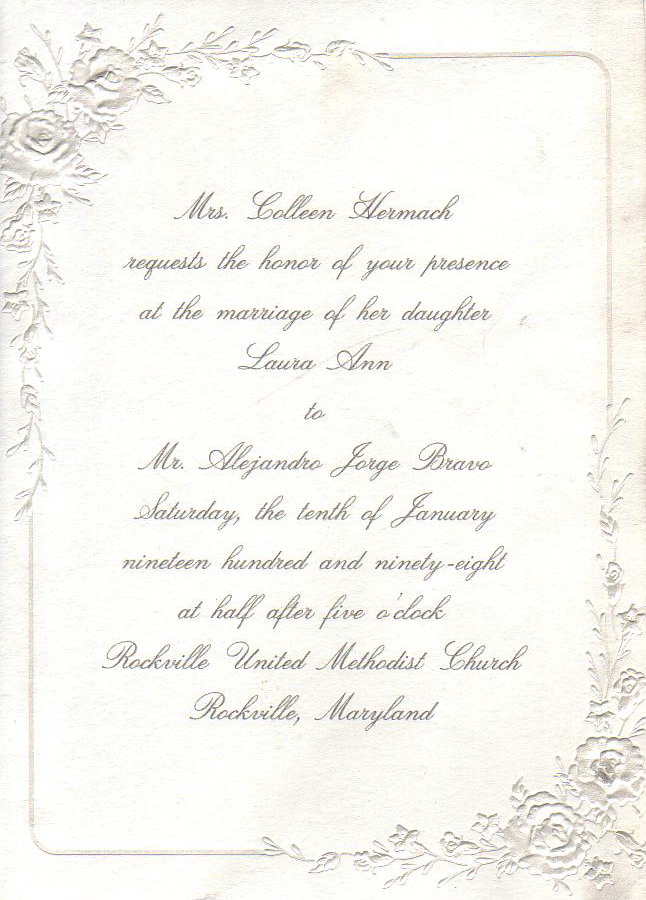 Mrs. Colleen Hermach
requests the honor of your presence
at the marriage of her daughter
Laura Ann
to
Mr. Alejandro Jorge Bravo
Saturday, the tenth of January
nineteen hundred and ninety-eight
at half after five o'clock
Rockville United Methodist Church
Rockville, Maryland